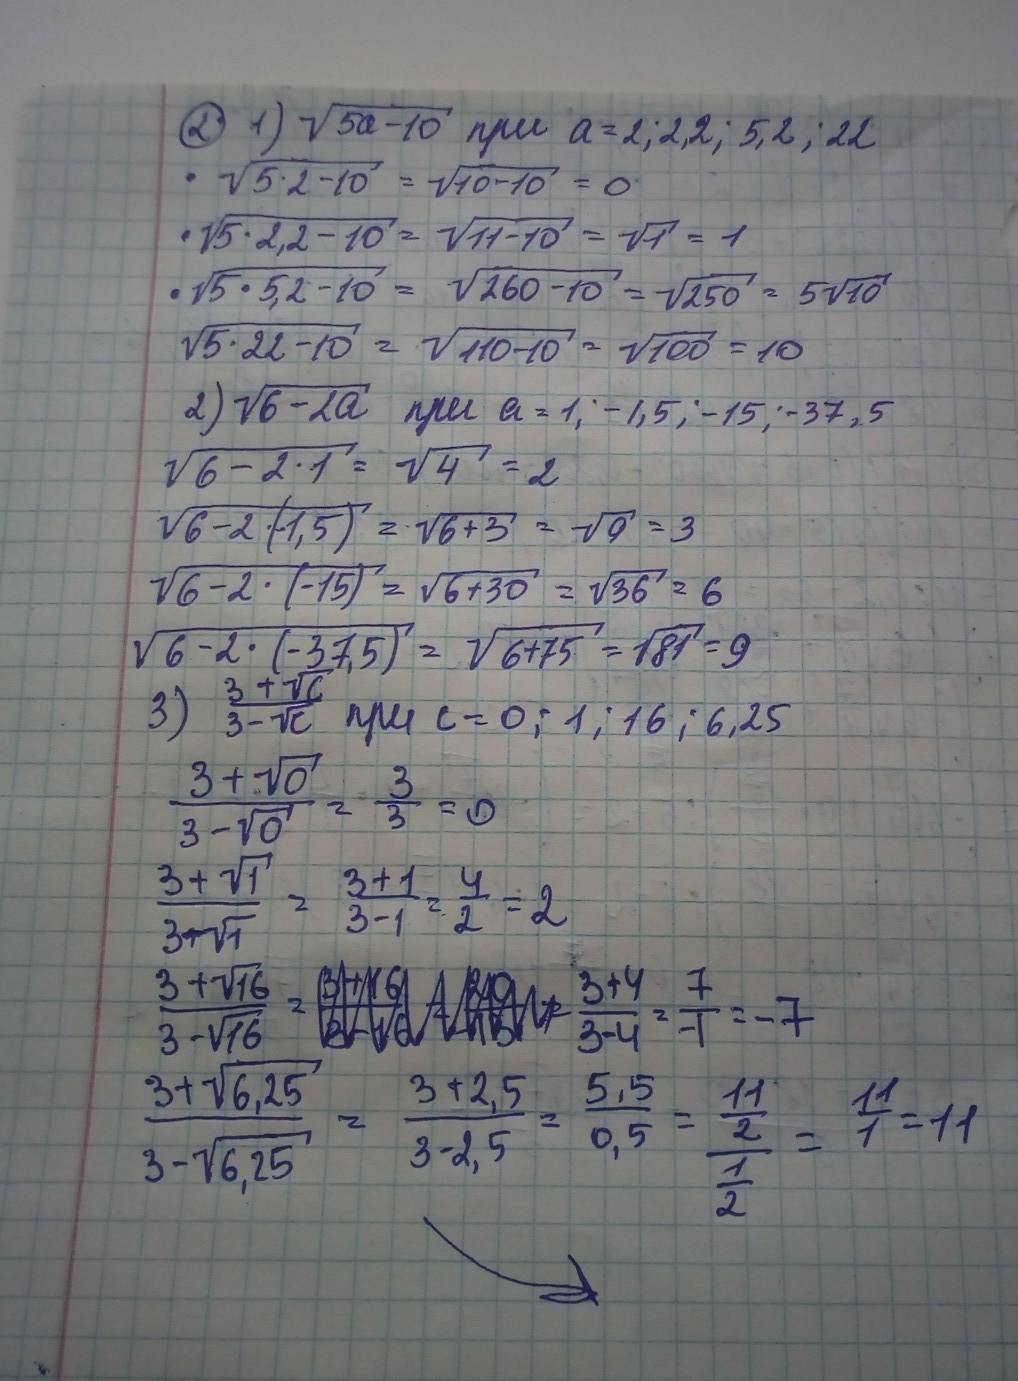 ② 1) √(5a-10) при a=2; 2,2; 5,2; 22
• √(5·2-10) = √(10-10) = 0
• √(5·2,2-10) = √(11-10) = √1 = 1
• √(5·5,2-10) = √(260-10) = √250 = 5√10
√(5·22-10) = √(110-10) = √100 = 10
2) √(6-2a) при a=1; -1,5; -15; -37,5
√(6-2·1) = √4 = 2
√(6-2·(-1,5)) = √(6+3) = √9 = 3
√(6-2·(-15)) = √(6+30) = √36 = 6
√(6-2·(-37,5)) = √(6+75) = √81 = 9
3) (3+√c)/(3-√c) при c=0; 1; 16; 6,25
(3+√0)/(3-√0) = 3/3 = 0
(3+√1)/(3-√1) = (3+1)/(3-1) = 4/2 = 2
(3+√16)/(3-√16) = (3+4)/(3-4) = 7/-1 = -7
(3+√6,25)/(3-√6,25) = (3+2,5)/(3-2,5) = 5,5/0,5 = (11/2)/(1/2) = 11/1 = 11